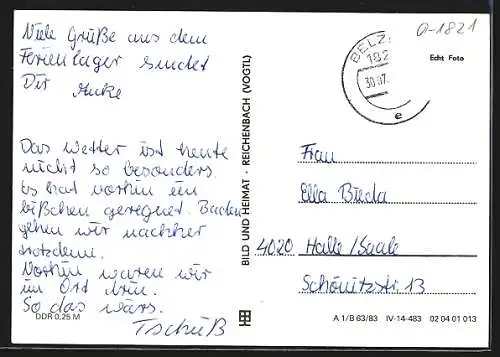 Viele Grüße aus dem
Ferienlager sendet
Dir Anke
Das Wetter ist heute
nicht so besonders.
Es hat vorhin ein
bißchen geregnet. Baden
gehen wir nachher
trotzdem.
Vorhin waren wir
im Ort drin.
So das wärs.
Tschüß
DDR 0,25 M
BILD UND HEIMAT · REICHENBACH (VOGTL)
0-1821
BELZ
182
30.07.
e
Echt Foto
Frau
Ella Bieda
4020 Halle/Saale
Schönitzstr. 13
A 1/B 63/83 IV-14-483 02 04 01 013